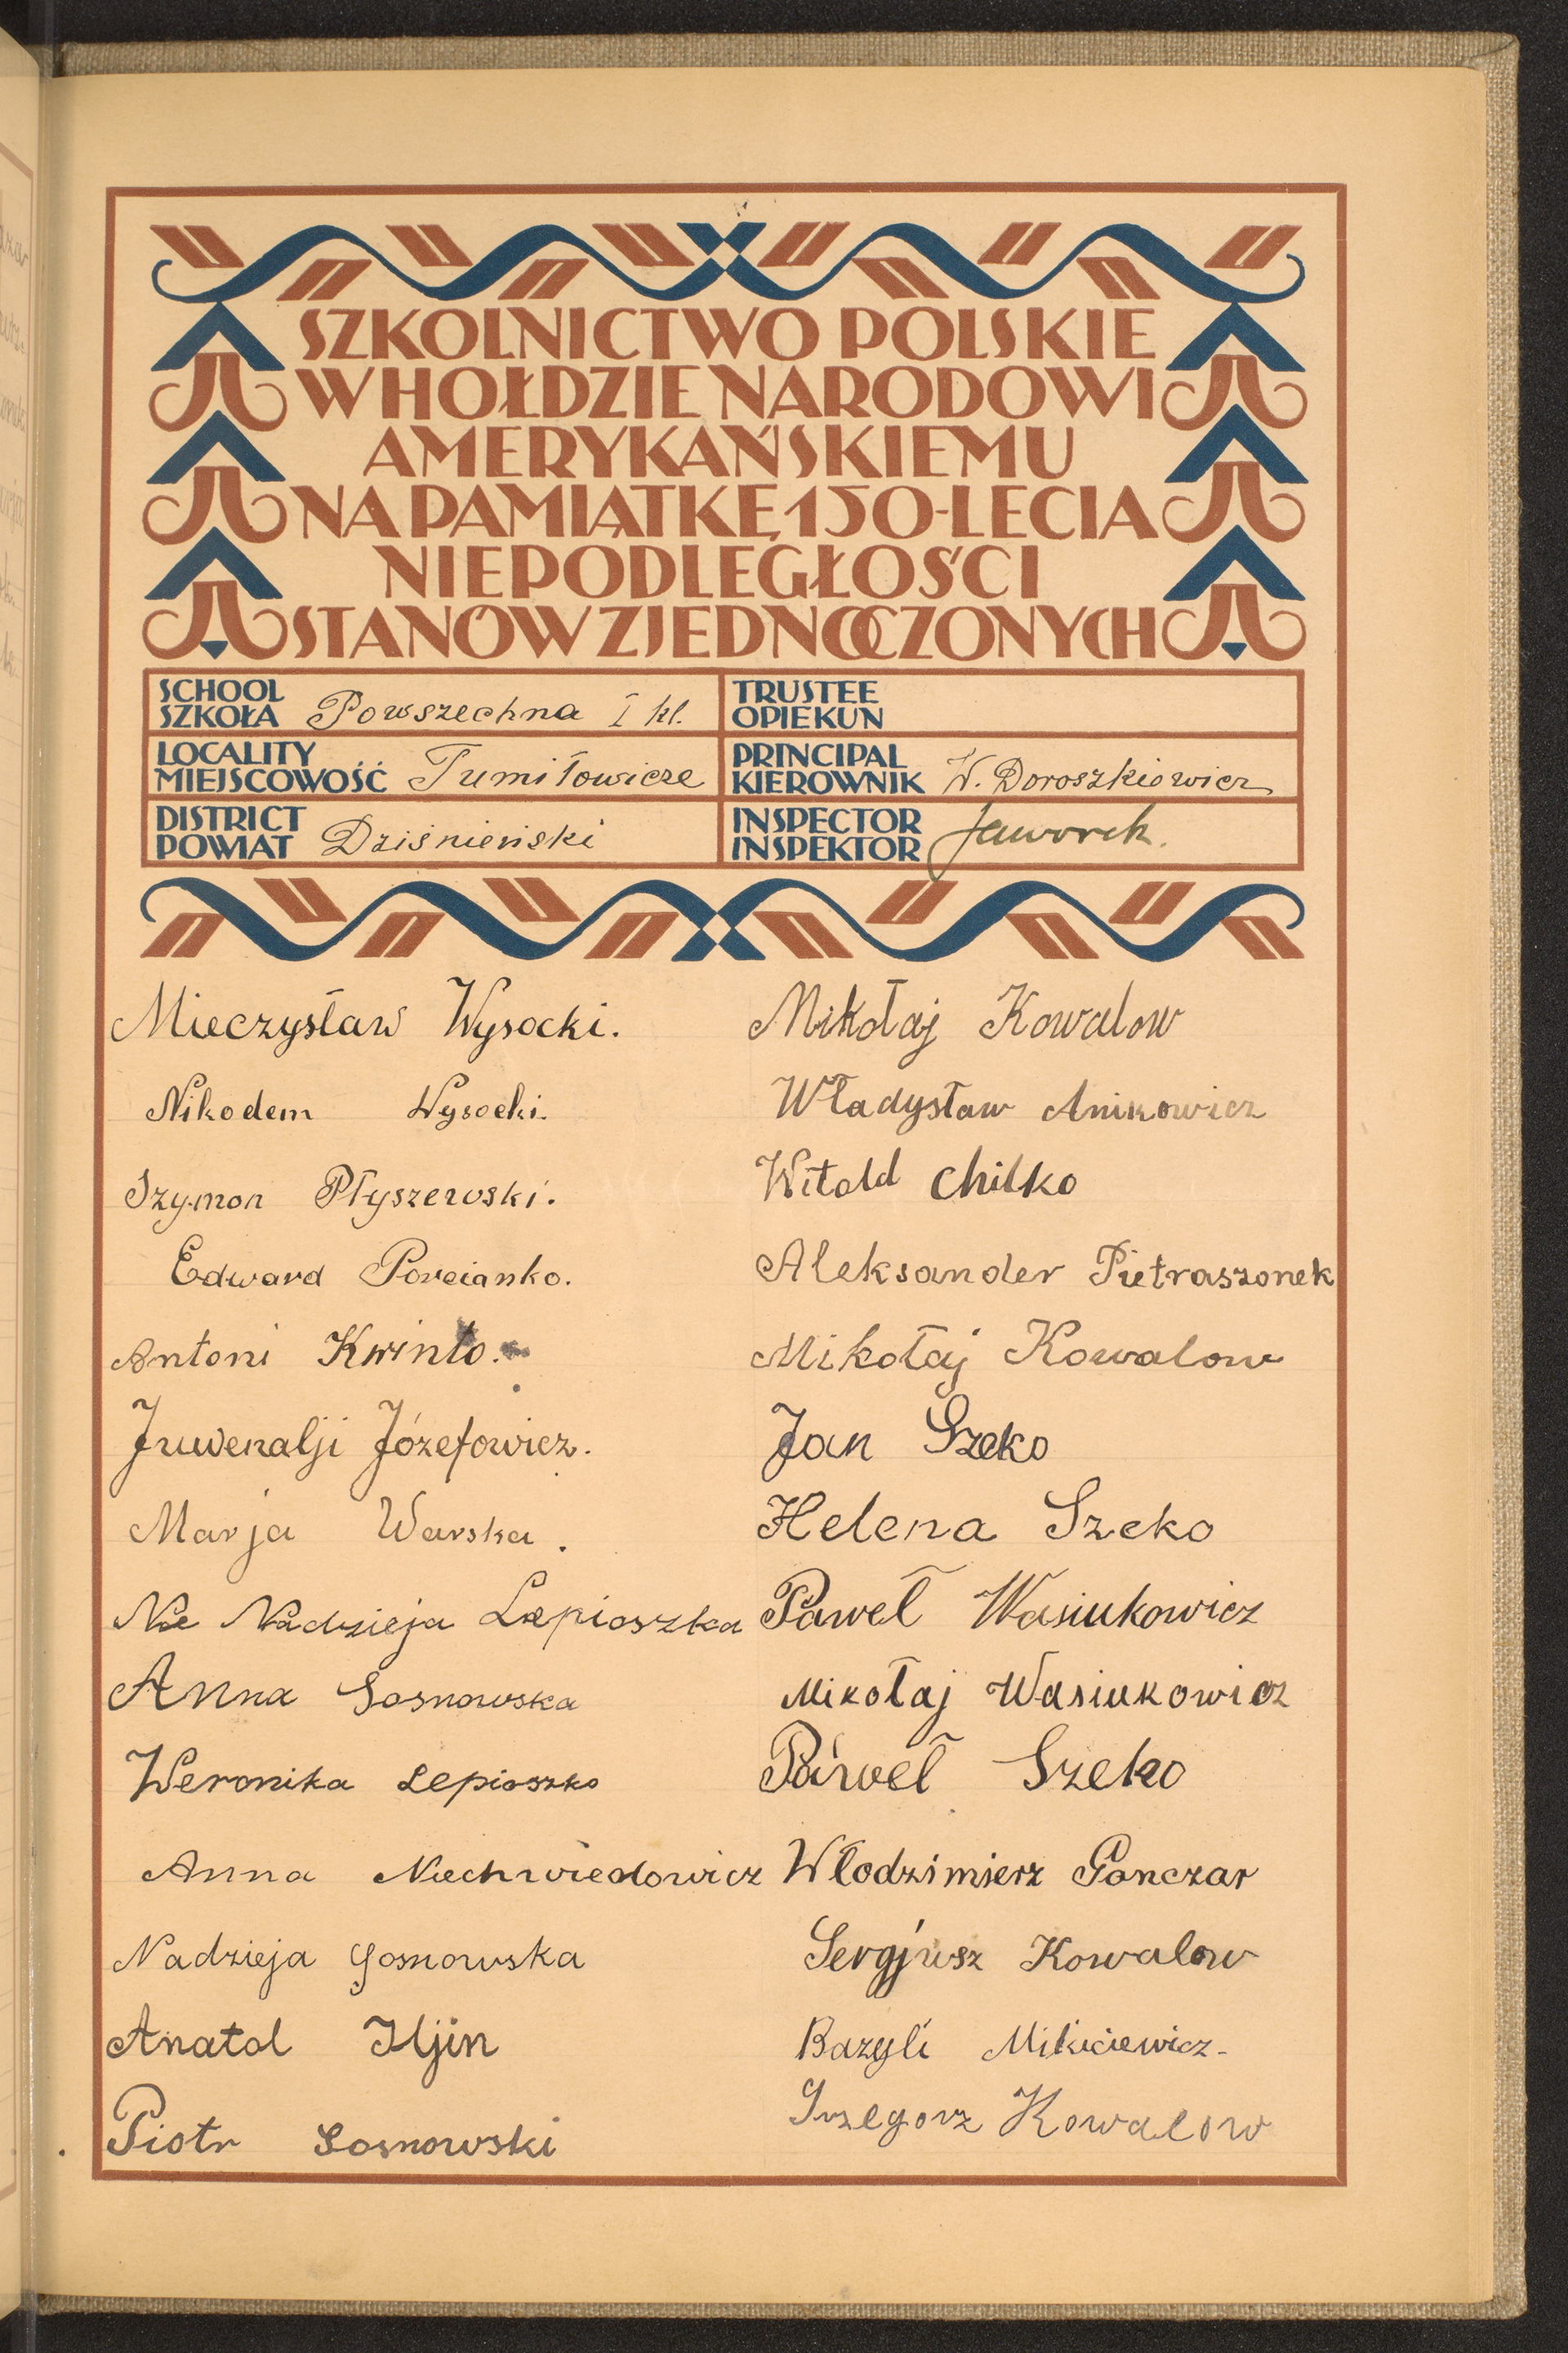 SZKOLNICTWO POLSKIE
W HOŁDZIE NARODOWI
AMERYKAŃSKIEMU
NA PAMIĄTKĘ 150-LECIA
NIEPODLEGŁOŚCI
STANÓW ZJEDNOCZONYCH
SCHOOL
SZKOŁA Powszechna I kl.
TRUSTEE
OPIEKUN
LOCALITY
MIEJSCOWOŚĆ Tumiłowicze
PRINCIPAL
KIEROWNIK W. Doroszkiewicz
DISTRICT
POWIAT Dziśnieński
INSPECTOR
INSPEKTOR Jaworek.
Mieczysław Wysocki.
Nikodem Wysocki.
Szymon Płyszewski.
Edward Porcianko.
Antoni Kwinto.
Juwenalji Józefowicz.
Marja Warska.
Nie Nadzieja Lepioszka
Anna Sosnowska
Weronika Lepioszko
Anna Niechwiedowicz
Nadzieja Sosnowska
Anatol Iljin
Piotr Sosnowski
Mikołaj Kowalow
Władysław Anikowicz
Witold Chilko
Aleksander Pietraszonek
Mikołaj Kowalow
Jan Szeko
Helena Szeko
Paweł Wasiukowicz
Mikołaj Wasiukowicz
Paweł Szeko
Włodzimierz Ganczar
Sergjusz Kowalow
Bazyli Mikiciewicz
Grzegorz Kowalow